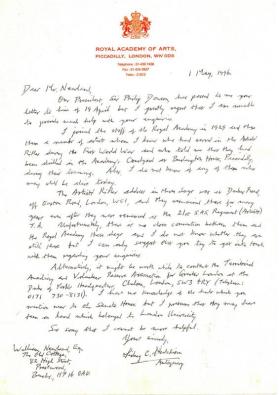 ROYAL ACADEMY OF ARTS,
PICCADILLY, LONDON, W1V 0DS
1 May, 1996
Dear Mr. Newland,
Our President Sir Philip Dowson has passed to me your
letter to him of 19 April but I greatly regret that I am unable
to provide much help with your enquiries.
I joined the staff of the Royal Academy in 1925 and there
were a number of artists whom I knew who had served in the Artists'
Rifles during the First World War and who told me how they had
been drilled in the Academy's Courtyard at Burlington House, Piccadilly
during their training. Alas, I do not know of any of them who
may still be alive today.
The Artists' Rifles address in those days was at Duke's Road,
off Euston Road, London, WC1, and they remained there for many
years even after they were renamed as the 21st SAS Regiment (Artists)
T.A. Unfortunately, there is no close connection between them and
the Royal Academy these days and I do not know whether they are
still there but I can only suggest that you try to get into touch
with them regarding your enquiries.
Alternatively, it might be worth while to contact the Territorial
Auxiliary and Volunteer Reserve Association for Greater London at the
Duke of York's Headquarters, Chelsea, London, SW3 4RY (Telephone:
0171 730-8131). I have no knowledge of the huts which you
mention near to the Senate House but I presume that they may have
been on land which belonged to London University.
So sorry that I cannot be more helpful.
Yours sincerely,
Sidney C. Hutchison
Antiquary
William Newland, Esq.
The Old College,
High Street,
Prestwood,
Bucks. HP16